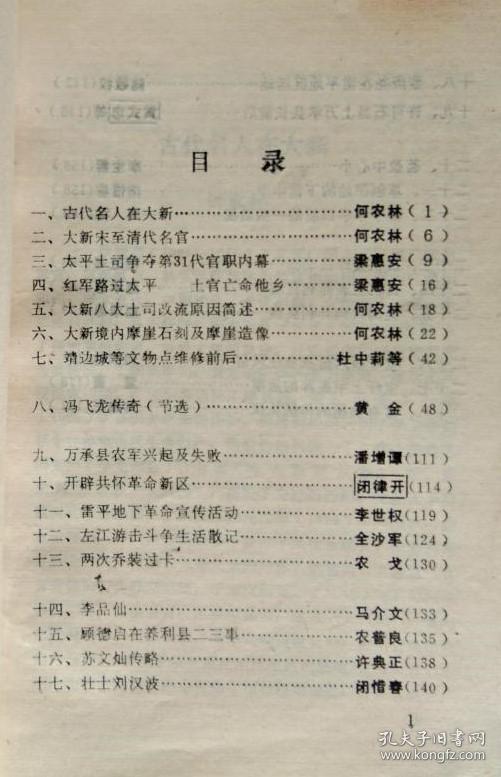 目 录
一、古代名人在大新……………………何农林(1)
二、大新宋至清代名官…………………何农林(6)
三、太平土司争夺第31代官职内幕………梁惠安(9)
四、红军路过太平 土官亡命他乡………梁惠安(16)
五、大新八大土司改流原因简述…………何农林(18)
六、大新境内摩崖石刻及摩崖造像………何农林(22)
七、靖边城等文物点维修前后……………杜中莉等(42)
八、冯飞龙传奇(节选)…………………黄 金(48)
九、万承县农军兴起及失败………………潘增谭(111)
十、开辟共怀革命新区……………………闭律开(114)
十一、雷平地下革命宣传活动……………李世权(119)
十二、左江游击斗争生活散记……………全沙军(124)
十三、两次乔装过卡………………………农 戈(130)
十四、李品仙………………………………马介文(133)
十五、顾德启在养利县二三事……………农普良(135)
十六、苏文灿传略…………………………许典正(138)
十七、壮士刘汉波…………………………闭惜春(140)
1
孔夫子旧书网
www.kongfz.com